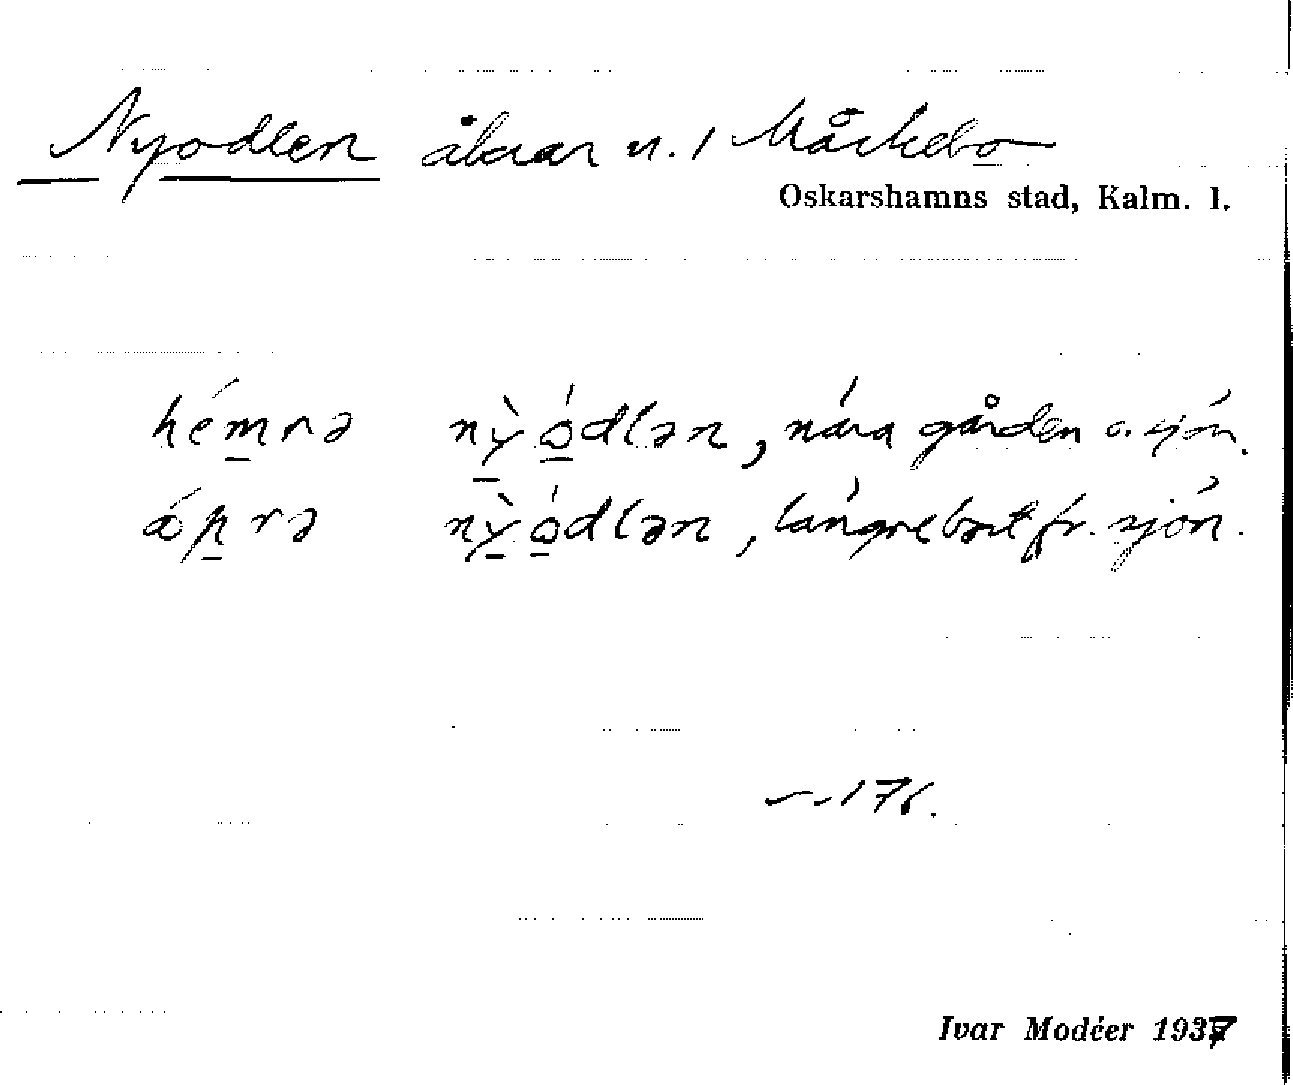 Nyodlen åkrar u. 1 Måckebo
Oskarshamns stad, Kalm. l.
hémrə nỳo̱dlən, nära gården o. sjön.
ǿprə nỳo̱dlən, längre bort fr. sjön.
176.
Ivar Modéer 1937